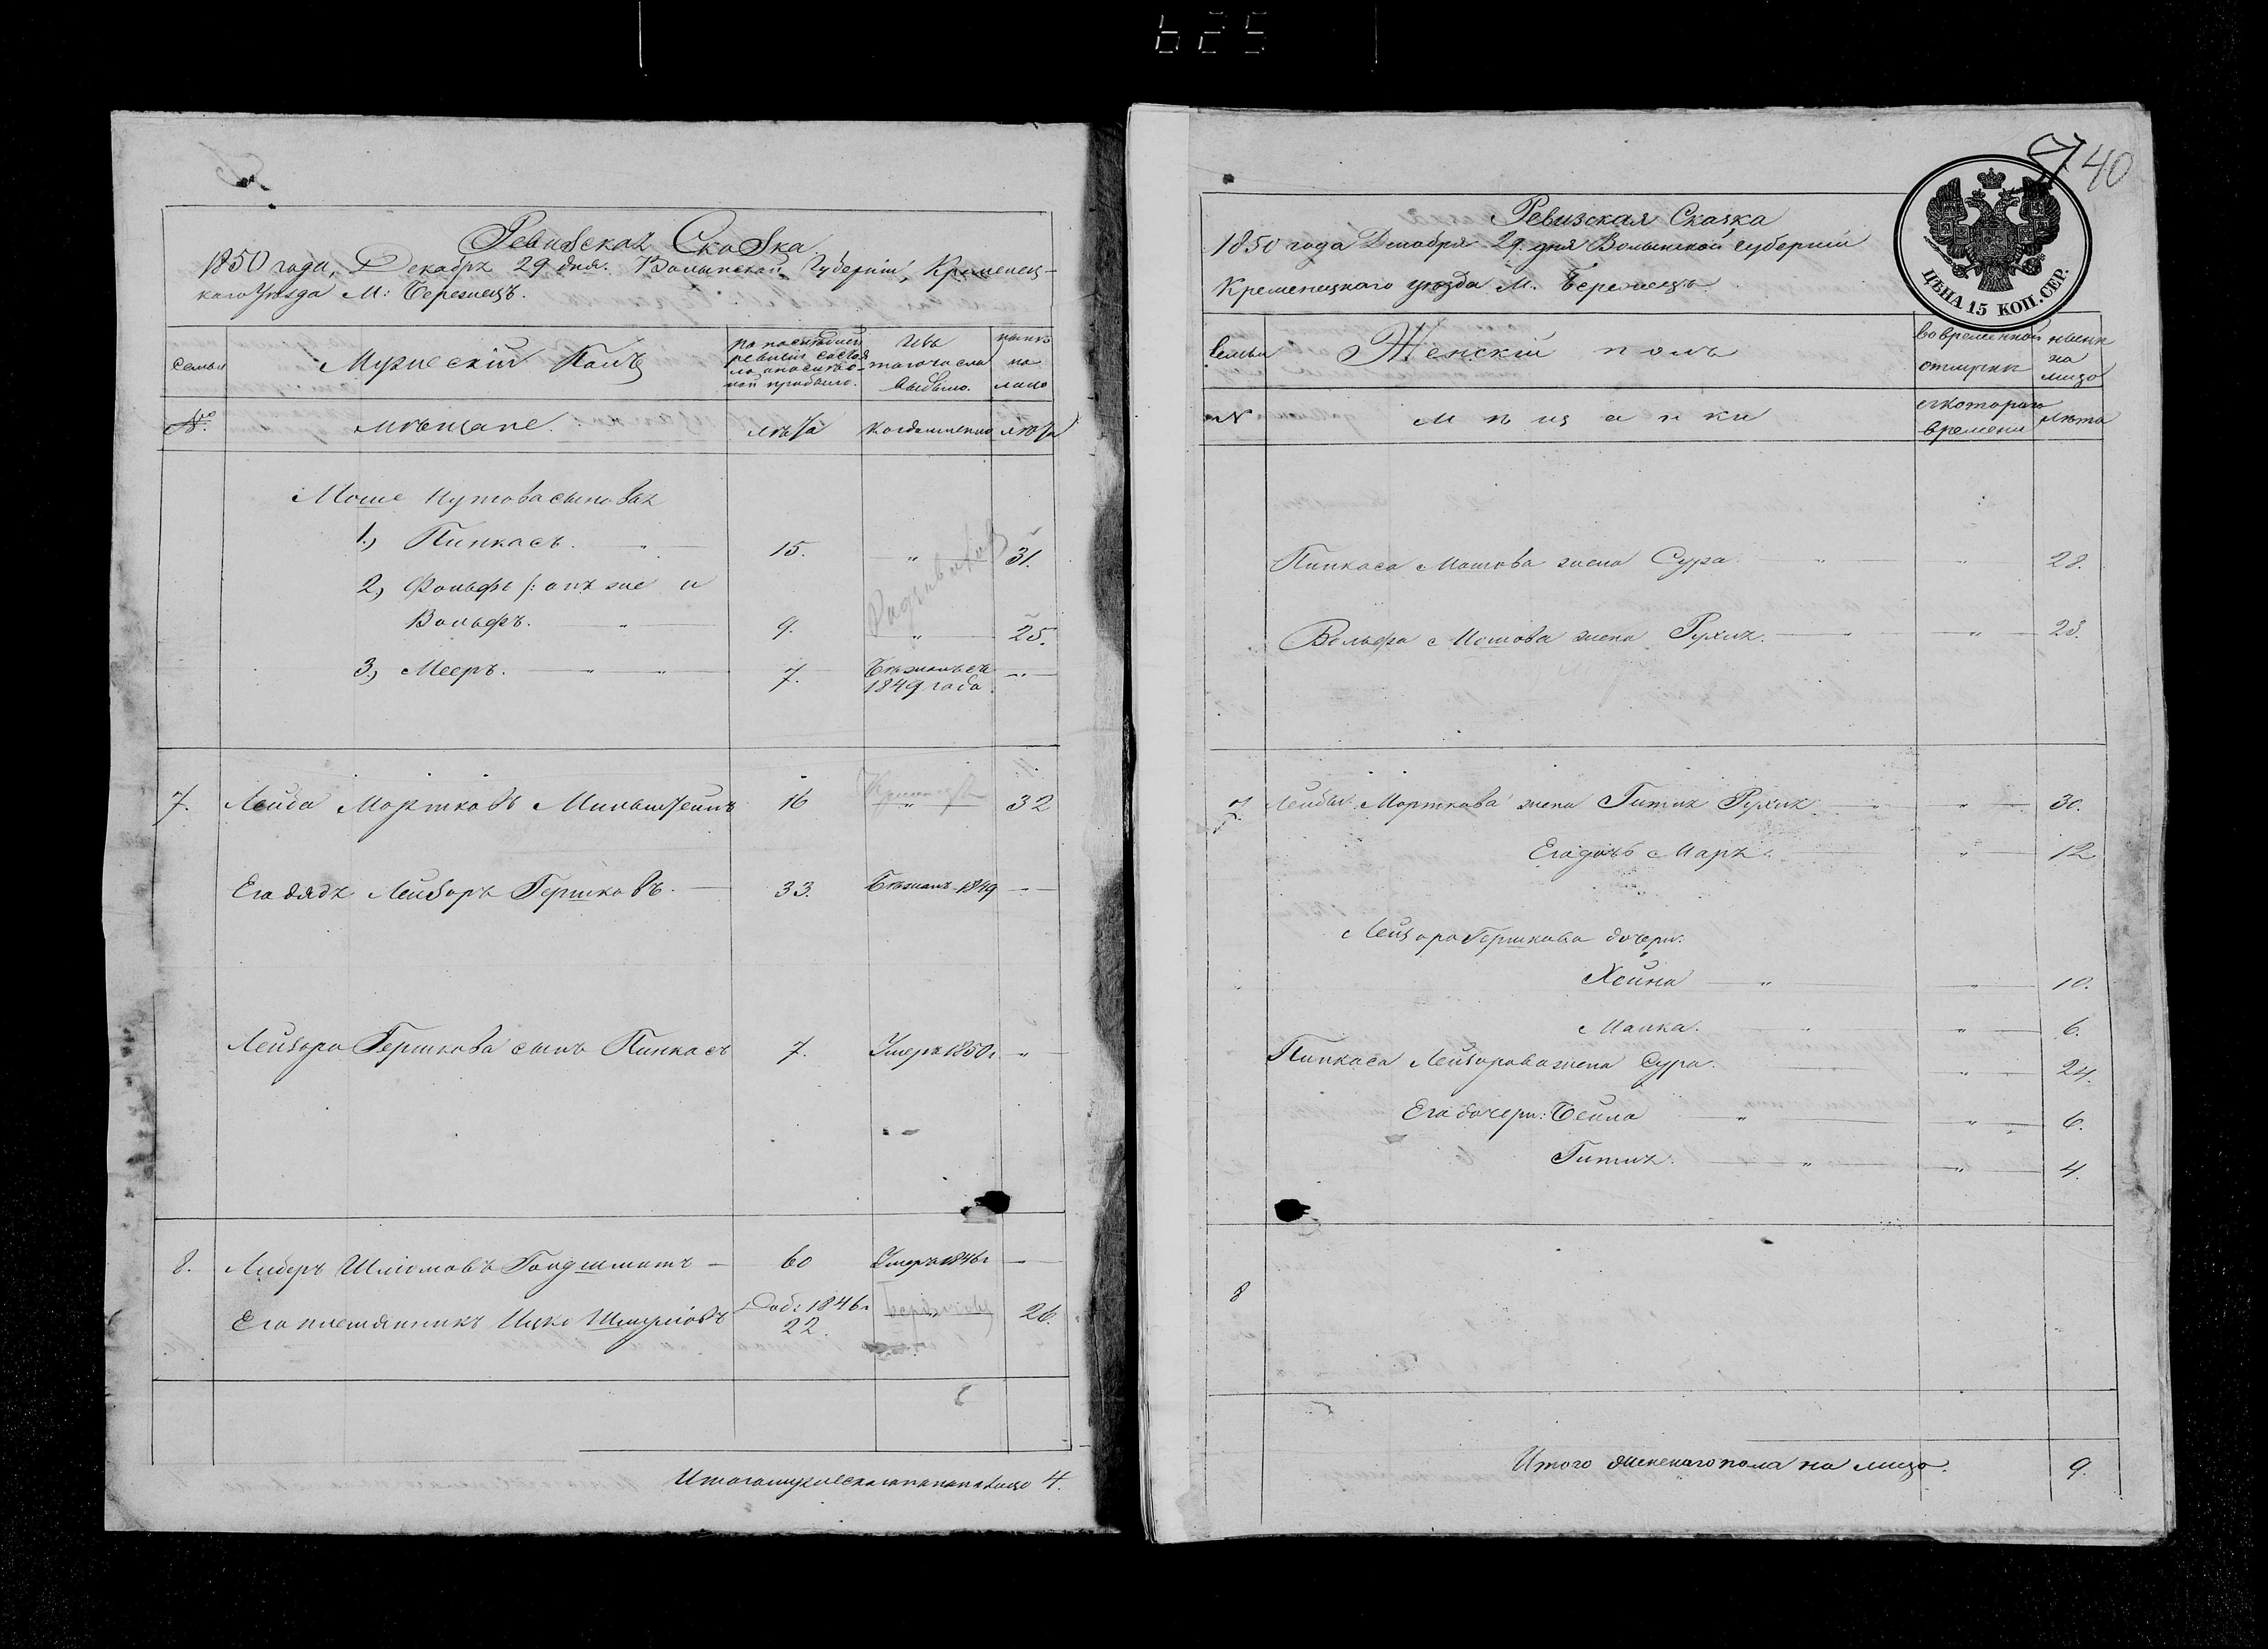 625
40
Ревизская Сказка
1850 года, Декабря 29 дня. Волынской Губерніи, Кременец-
каго Уезда М: Березнецъ.
Семьи
Мужескій Полъ
по последней
ревизіи состоя
ло
Изъ
того числа
выбыло.
ныне
на
лицо
№.
мѣщане.
лѣта
когда именно
лѣта
Моше Путова сыновья
1., Пинкасъ. 15. " 31.
2, Фольфъ /: онъ же и
Вольфъ. 9. " 25.
3., Мееръ. 7. Бѣжалъ съ
1849 года
7. Лейба Мортковъ Мильштейнъ 16 " 32
Его дядя Лейзоръ Гершковъ. 33. Бѣжалъ 1849
Лейзора Гершкова сынъ Пинкасъ 7. Умеръ 1850 г "
8. Лидеръ Шліомовъ 60 Умеръ 1846 г
Его племянникъ Ицко Доб: 1846 г 26.
22.
Итого мужескаго пола на лицо 4.
Ревизская Сказка
1850 года Декабря 29. дня Волынской губерніи
Кременецкаго уезда М. Березнецъ
ЦѢНА 15 КОП. СЕР.
Семьи
Женскій полъ
во временной
отлучки
ныне
на
лицо
N
Мѣщанки
съ котораго
времени
лѣта
Пинкаса Мошова жена Сура " " 28.
Вольфа Мошова жена Рухля. " " 23.
7. Лейбы Морткова жена Гитля Рухля " " 30.
Его дочь Маря. " 12
Лейзора Гершкова дочери:
Хейна " " 10.
Малка. " " 6.
Пинкаса Лейзорова жена Сура. " " 24.
Его дочери: Бейла " " 6.
Гитля. " " 4.
8
Итого женскаго пола на лицо. 9.